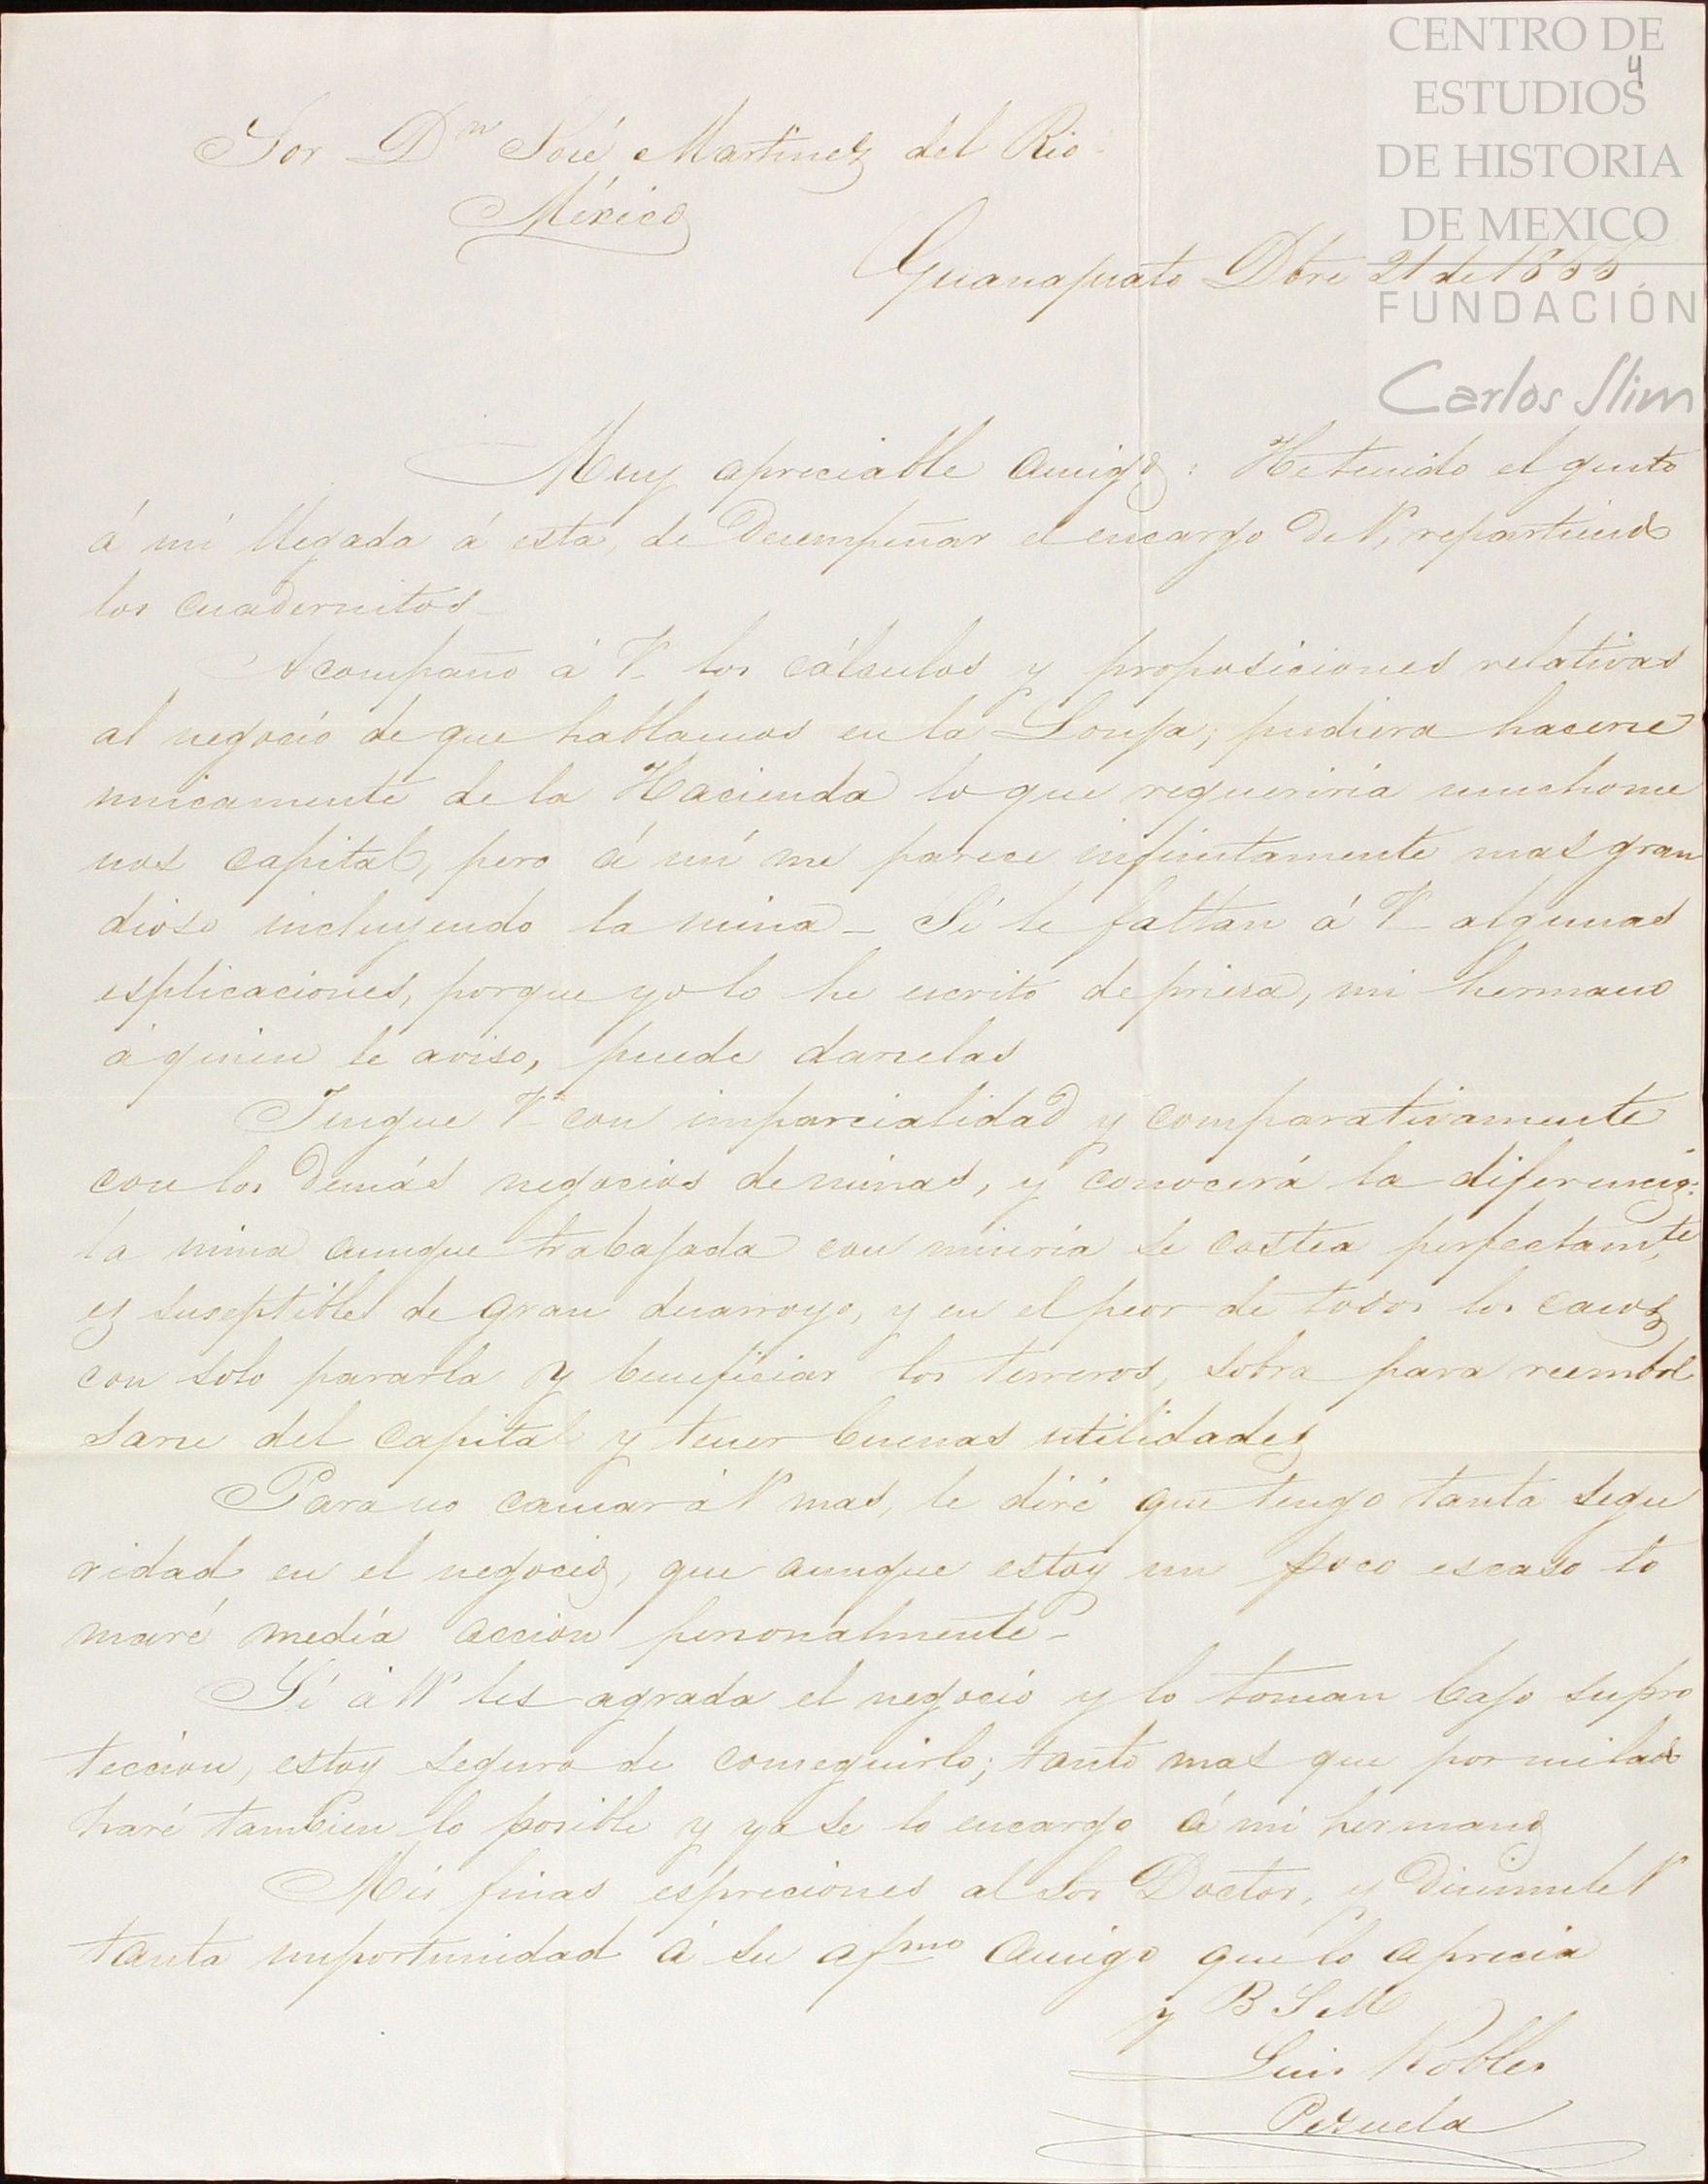 CENTRO DE
ESTUDIOS
DE HISTORIA
DE MEXICO
FUNDACIÓN
Carlos Slim
4
Sor Dn José Martinez del Rio
México
Guanajuato Dbre 21 de 1855
Muy apreciable amigo: He tenido el gusto
á mi llegada á esta, de desempeñar el encargo de V, repartiendo
los cuadernitos_
Acompaño á V_ los cálculos y proposiciones relativas
al negocio de que hablamos en la Lonja; pudiera hacerse
unicamente de la Hacienda lo que requeriria mucho me
nos capital, pero á mi me parece infinitamente mas gran
dioso incluyendo la mina_ Si le faltan á V_ algunas
esplicaciones, porque yo lo he escrito de priesa, mi hermano
á quien le aviso, puede darselas
Jusgue V_ con imparcialidad y comparativamente
con los demás negocios de minas, y conocerá la diferencia:
la mina aunque trabajada con miseria se costea perfectamte,
es suseptible de gran desarroyo, y en el peor de todos los casos
con solo pararla y beneficiar los terreros, sobra para reembol
sarse del capital y tener buenas utilidades
Para no cansar á V mas, le diré que tengo tanta segu
ridad en el negocio, que aunque estoy un poco escaso to
maré media accion personalmente_
Si á VV les agrada el negocio y lo toman bajo su pro
teccion, estoy seguro de conseguirlo; tanto mas que por mi lado
haré tambien lo posible y ya se lo encargo á mi hermano
Mis finas espreciones al Sor Doctor, y disimule V
tanta importunidad á su afmo amigo que lo aprecia
y B S M
Luis Robles
Pezuela